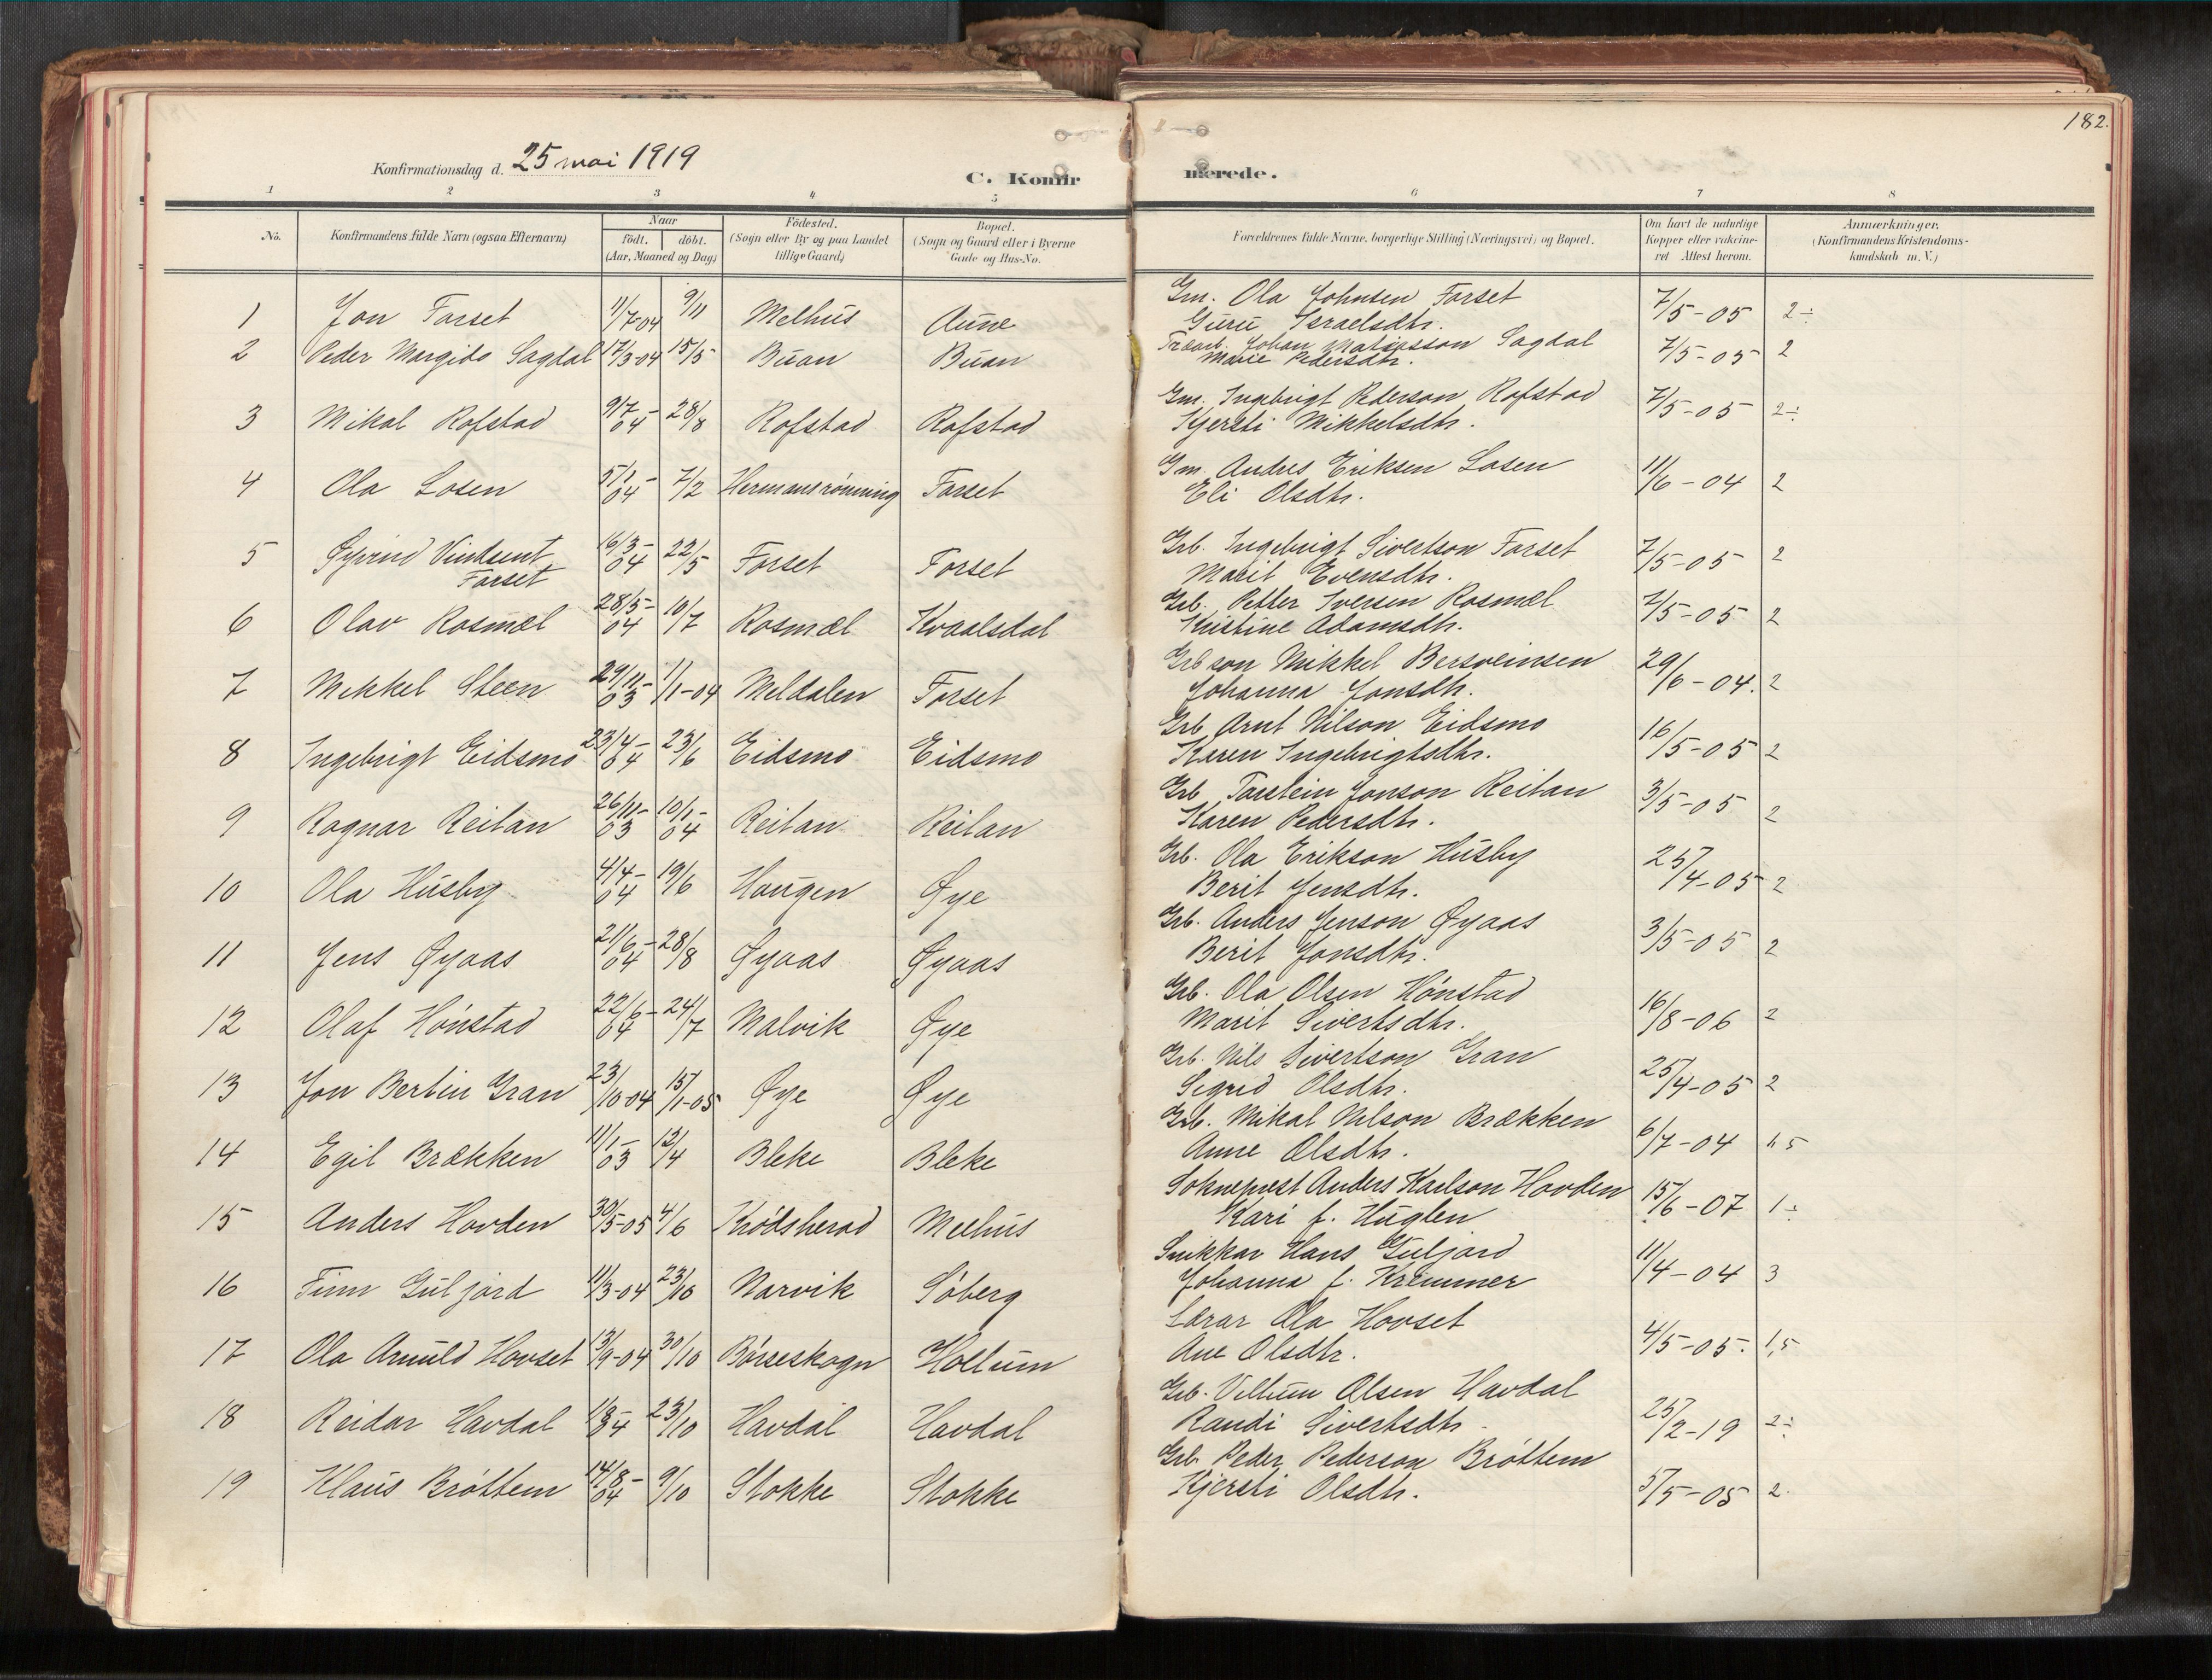 182.
Konfirmationsdag d. 25 mai 1919
C. Konfirmerede.
1 2 3 4 5 6 7 8
No. Konfirmandens fulde Navn (ogsaa Efternavn) Naar födt. döbt. (Aar, Maaned og Dag) Födested. (Sogn eller By og paa Landet tillige Gaard) Bopæl. (Sogn og Gaard eller i Byerne Gade og Hus-No. Forældrenes fulde Navne, borgerlige Stilling (Næringsvei) og Bopæl. Om havt de naturlige Kopper eller vakcineret Attest herom. Anmærkninger. (Konfirmandens Kristendomskundskab m. V.)
1 Jon Forset 11/7-04 9/11 Melhus Aune Gm. Ola Johnsen Forset 7/5-05 2÷
Guru Israelsdtr.
2 Peder Margido Sagdal 17/3-04 15/5 Buan Buan Johan Matiasson Sagdal 7/5-05 2
Marie Pedersdtr.
3 Mikal Rofstad 9/7-04 28/8 Rofstad Rofstad Gm. Ingebrigt Pederson Rofstad 7/5-05 2÷
Kjersti Mikkelsdtr.
4 Ola Losen 5/1-04 7/2 Hermansrönning Forset Gm. Andres Eriksen Losen 11/6-04 2
Eli Olsdtr.
5 Øyvind Vinksent Forset 16/3-04 22/5 Forset Forset Grb. Ingebrigt Sivertson Forset 7/5-05 2
Marit Evensdtr.
6 Olav Rosmæl 28/5-04 10/7 Rosmæl Kvaalsdal Grb. Petter Iversen Rosmæl 7/5-05 2
Kristine Adamsdtr.
7 Mikkel Steen 29/11-03 1/1-04 Meldalen Forset Grb son Mikkel Bersveinsen 29/6-04. 2
Johanna Jonsdtr.
8 Ingebrigt Eidsmo 23/4-04 23/6 Eidsmo Eidsmo Grb Arnt Nilson Eidsmo 16/5-05 2
Karen Ingebrigtsdtr.
9 Ragnar Reitan 26/11-03 10/1-04 Reitan Reitan Grb Torstein Jonson Reitan 3/5-05 2
Karen Pedersdtr.
10 Ola Husby 4/4-04 19/6 Haugen Øye Grb. Ola Erikson Husby 25/4-05 2
Berit Jensdtr.
11 Jens Øyaas 21/6-04 28/8 Øyaas Øyaas Grb. Anders Jenson Øyaas 3/5-05 2
Berit Jonsdtr.
12 Olaf Hönstad 22/6-04 24/7 Malvik Øye Grb. Ola Olsen Hönstad 16/8-06 2
Marit Sivertsdtr.
13 Jon Bertin Gran 23/10-04 15/1-05 Øye Øye Grb. Nils Sivertson Gran 25/4-05 2
Sigrid Olsdtr.
14 Egil Brækken 11/1-03 12/4 Bleke Bleke Grb. Mikal Nilson Brækken 6/7-04 1,5
Anne Olsdtr.
15 Anders Hovden 30/5-05 4/6 Krödsherad Melhus Sokneprest Anders Karlson Hovden 15/6-07 1÷
Kari f. Huglen
16 Finn Guljord 11/3-04 23/10 Narvik Söberg Snikkar Hans Guljord 11/4-04 3
Johanna f. Kremmer
17 Ola Arnuld Hovset 13/9-04 30/10 Börseskogn Hollum Lærar Ola Hovset 4/5-05. 1,5
Ane Olsdtr.
18 Reidar Havdal 23/10 Havdal Havdal Grb. Villum Olsen Havdal 25/2-19 2÷
Randi Sivertsdtr
19 Klaus Bröttem 14/8-04 9/10 Stokke Stokke Grb. Peder Pederson Bröttem 5/5-05 2.
Kjersti Olsdtr.